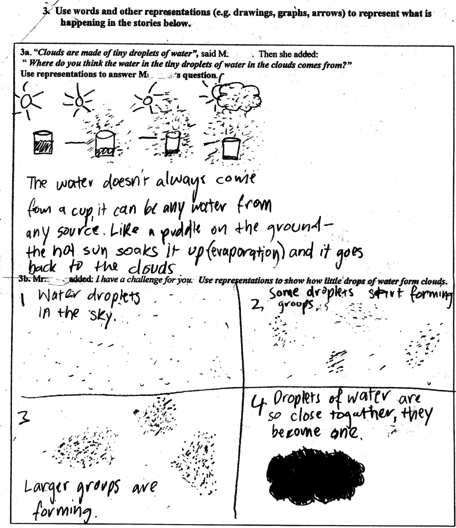 3. Use words and other representations (e.g. drawings, graphs, arrows) to represent what is
happening in the stories below.
3a. "Clouds are made of tiny droplets of water", said M. . Then she added:
" Where do you think the water in the tiny droplets of water in the clouds comes from?"
Use representations to answer M 's question.
The water doesn't always come
from a cup, it can be any water from
any source. Like a puddle on the ground-
the hot sun soaks it up (evaporation) and it goes
back to the clouds
3b. Mr. added: I have a challenge for you. Use representations to show how little drops of water form clouds.
1 Water droplets
in the sky.
2 Some droplets start forming
groups.
3
Larger groups are
forming.
4 Droplets of water are
so close together, they
become one.